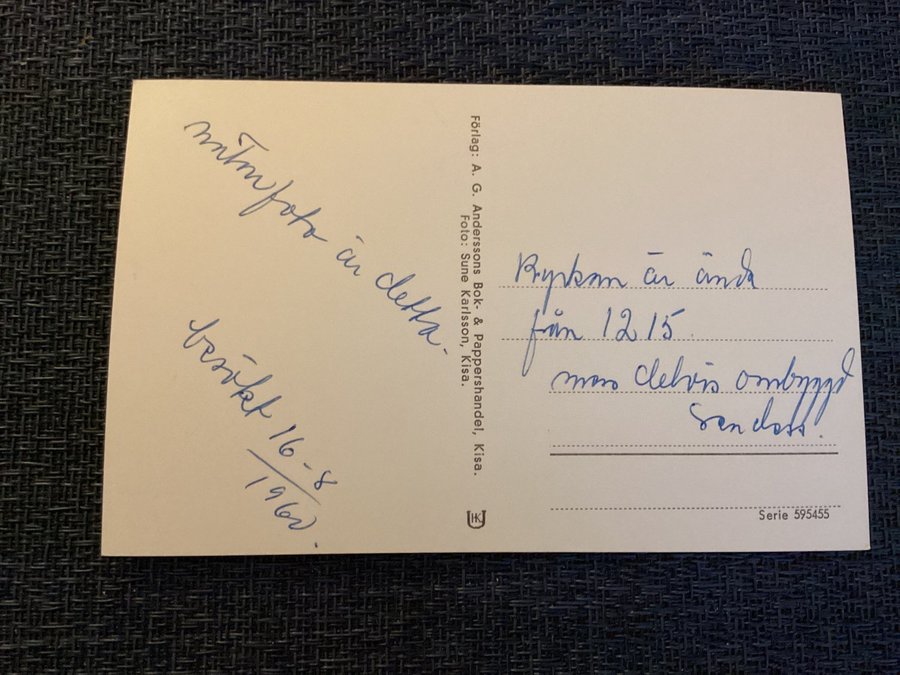 foto är detta.
besökt 16-8
1960.
Förlag: A. G. Anderssons Bok- & Pappershandel, Kisa.
Foto: Sune Karlsson, Kisa.
HK
Kyrkan är ända
från 1215.
men delvis ombyggd
sen dess.
Serie 595455